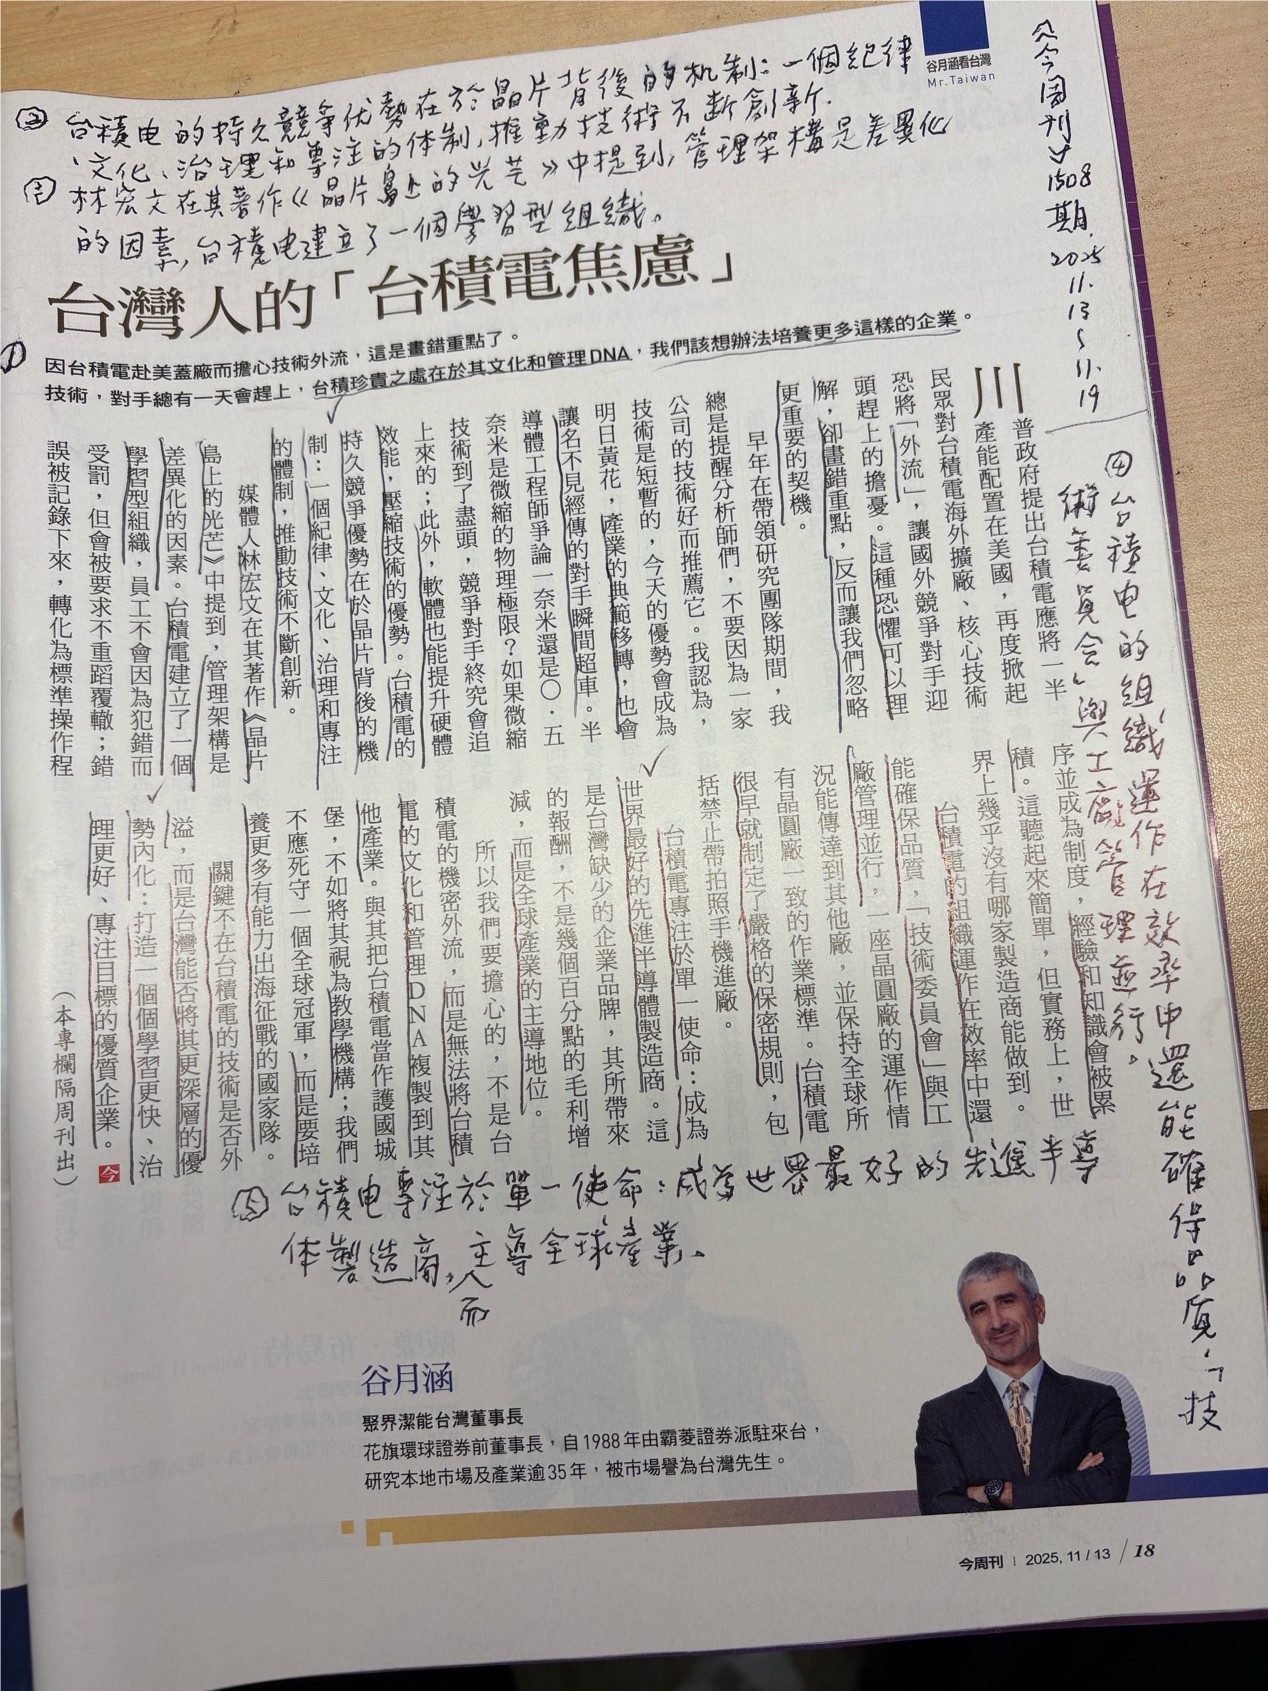 谷月涵看台灣
Mr.Taiwan
《今周刊》
1508
期.
2025
11.
13
~
11.
19
② 台積电的持久競爭优勢在於晶片背後的机制:一個紀律
、文化、治理和專注的体制,推動技術不断創新.
③ 林宏文在其著作《晶片島上的光芒》中提到,管理架構是差異化
的因素,台積电建立了一個學習型組織。
台灣人的「台積電焦慮」
①
因台積電赴美蓋廠而擔心技術外流,這是畫錯重點了。
技術,對手總有一天會趕上,台積珍貴之處在於其文化和管理DNA,我們該想辦法培養更多這樣的企業。
川普政府提出台積電應將一半
產能配置在美國,再度掀起
民眾對台積電海外擴廠、核心技術
恐將「外流」,讓國外競爭對手迎
頭趕上的擔憂。這種恐懼可以理
解,卻畫錯重點,反而讓我們忽略
更重要的契機。
早年在帶領研究團隊期間,我
總是提醒分析師們,不要因為一家
公司的技術好而推薦它。我認為,
技術是短暫的,今天的優勢會成為
明日黃花,產業的典範移轉,也會
讓名不見經傳的對手瞬間超車。半
導體工程師爭論一奈米還是〇・五
奈米是微縮的物理極限?如果微縮
技術到了盡頭,競爭對手終究會追
上來的;此外,軟體也能提升硬體
效能,壓縮技術的優勢。台積電的
持久競爭優勢在於晶片背後的機
制:一個紀律、文化、治理和專注
的體制,推動技術不斷創新。
媒體人林宏文在其著作《晶片
島上的光芒》中提到,管理架構是
差異化的因素。台積電建立了一個
學習型組織,員工不會因為犯錯而
受罰,但會被要求不重蹈覆轍;錯
誤被記錄下來,轉化為標準操作程
序並成為制度,經驗和知識會被累
積。這聽起來簡單,但實務上,世
界上幾乎沒有哪家製造商能做到。
台積電的組織運作在效率中還
能確保品質,「技術委員會」與工
廠管理並行,一座晶圓廠的運作情
況能傳達到其他廠,並保持全球所
有晶圓廠一致的作業標準。台積電
很早就制定了嚴格的保密規則,包
括禁止帶拍照手機進廠。
台積電專注於單一使命:成為
世界最好的先進半導體製造商。這
是台灣缺少的企業品牌,其所帶來
的報酬,不是幾個百分點的毛利增
減,而是全球產業的主導地位。
所以我們要擔心的,不是台
積電的機密外流,而是無法將台積
電的文化和管理DNA複製到其
他產業。與其把台積電當作護國城
堡,不如將其視為教學機構;我們
不應死守一個全球冠軍,而是要培
養更多有能力出海征戰的國家隊。
關鍵不在台積電的技術是否外
溢,而是台灣能否將其更深層的優
勢內化:打造一個個學習更快、治
理更好、專注目標的優質企業。今
(本專欄隔周刊出)
④台積电的組織運作在效率中還能確保品質,「技
術委員会」與工廠管理並行。
⑤ 台積电專注於單一使命:成為世界最好的先進半導
体製造商,主導全球產業.
人
而
谷月涵
聚界潔能台灣董事長
花旗環球證券前董事長,自1988年由霸菱證券派駐來台,
研究本地市場及產業逾35年,被市場譽為台灣先生。
今周刊 | 2025, 11 / 13 / 18